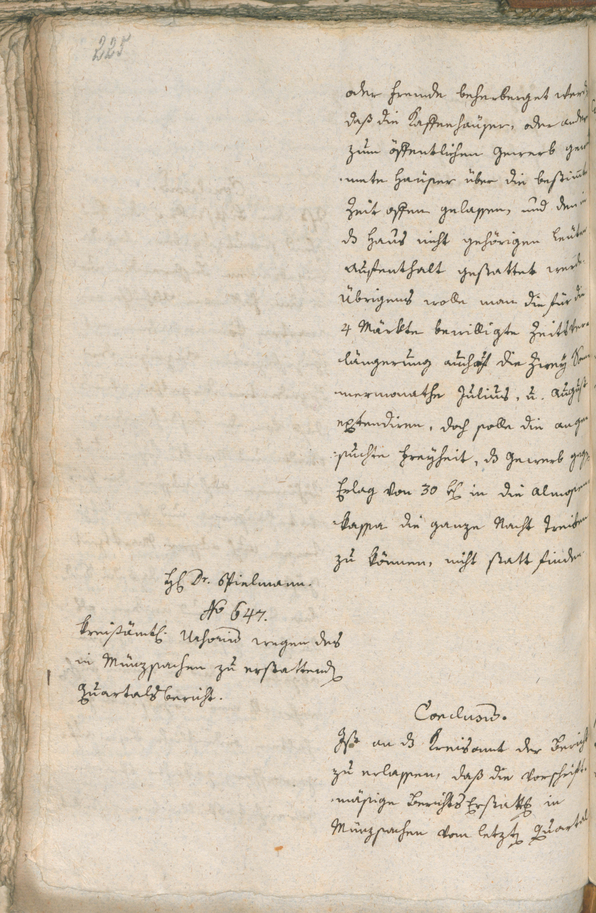 225
oder fremde beherberget werd
daß die Kaffeehäuser, oder ander
zum öffentlichen Gewerb gewi
mete Häuser über die bestimmte
Zeit offen gelassen, und den in
ds Haus nicht gehörigen Leuten
Aufenthalt gestattet werde.
Übrigens wolle man die für die
4 Märkte bewilligte Zeitsver
längerung auch auf die zwey Som
mermonathe Julius, u. August
extendiren, doch solle die ange
suchte Freyheit, ds Gewerb gegen
Erlag von 30 in die Almosen
kassa die ganze Nacht treiben
zu können, nicht statt finden.
H. Dr. Spielmann.
No 647.
Kreisämtl. wegen des
in Münzsachen zu erstattend
Quartalsbericht.
Conclusum.
Ist an ds Kreisamt der Bericht
zu erlassen, daß die vorschrift
mäßige Berichts Erstattg in
Münzsachen vom letzt Quartal